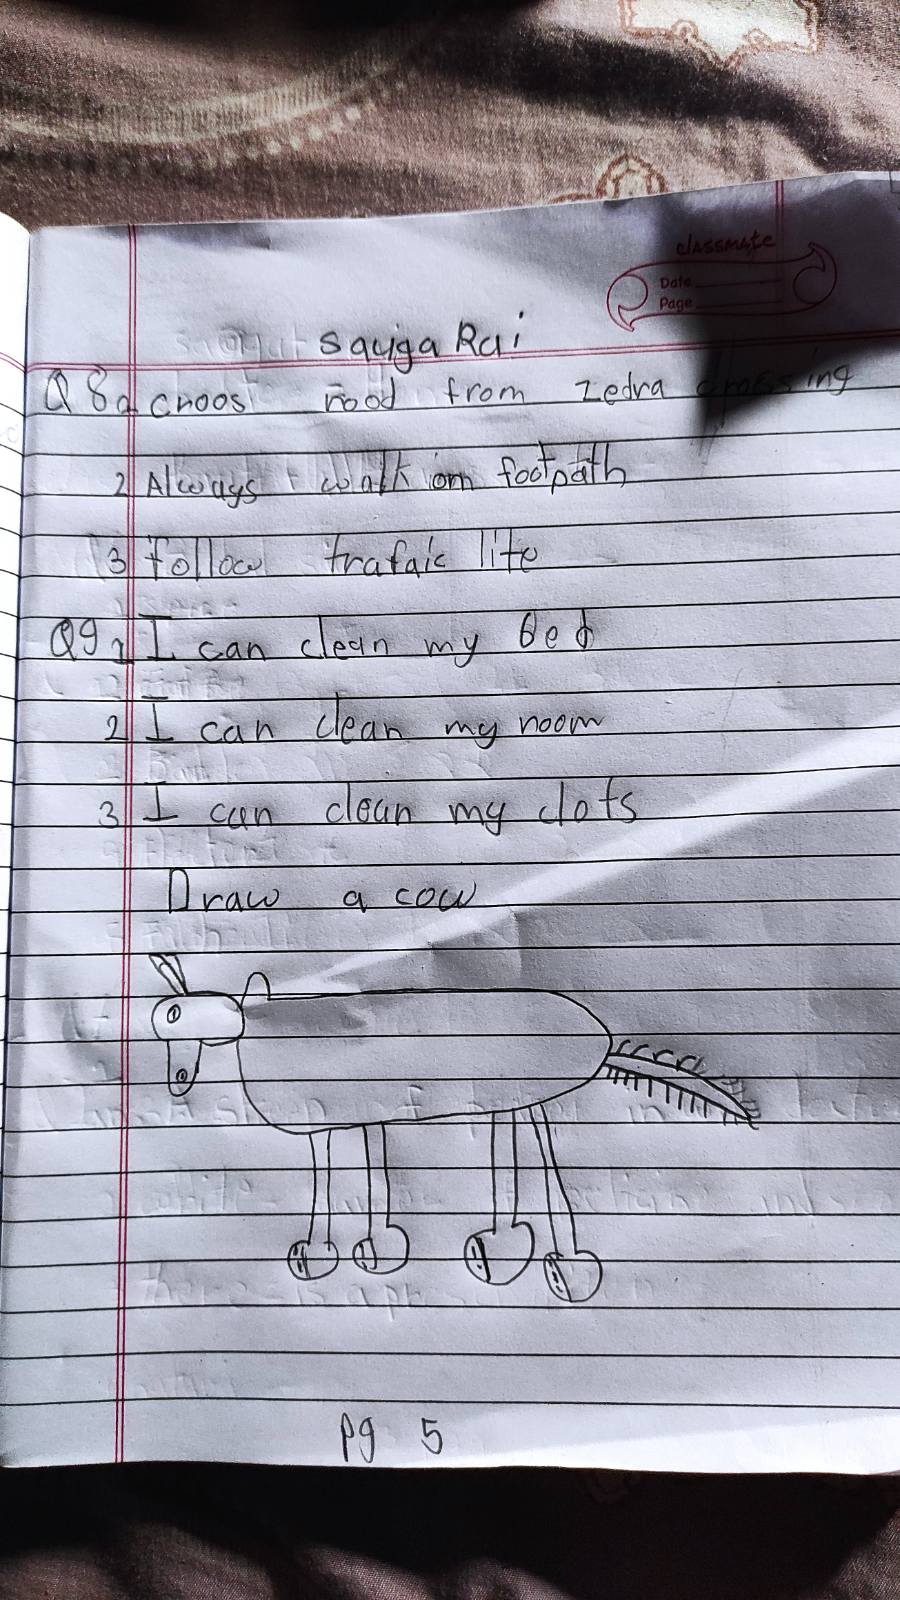 classmate
Date
Page
Sayga Rai
Q8 1 croos rood from zedra crossing
2 Always walk on footpath
3 follow trafaic lite
Q9 1 I can clean my bed
2 I can clean my room
3 I can clean my clots
Draw a cow
Pg 5